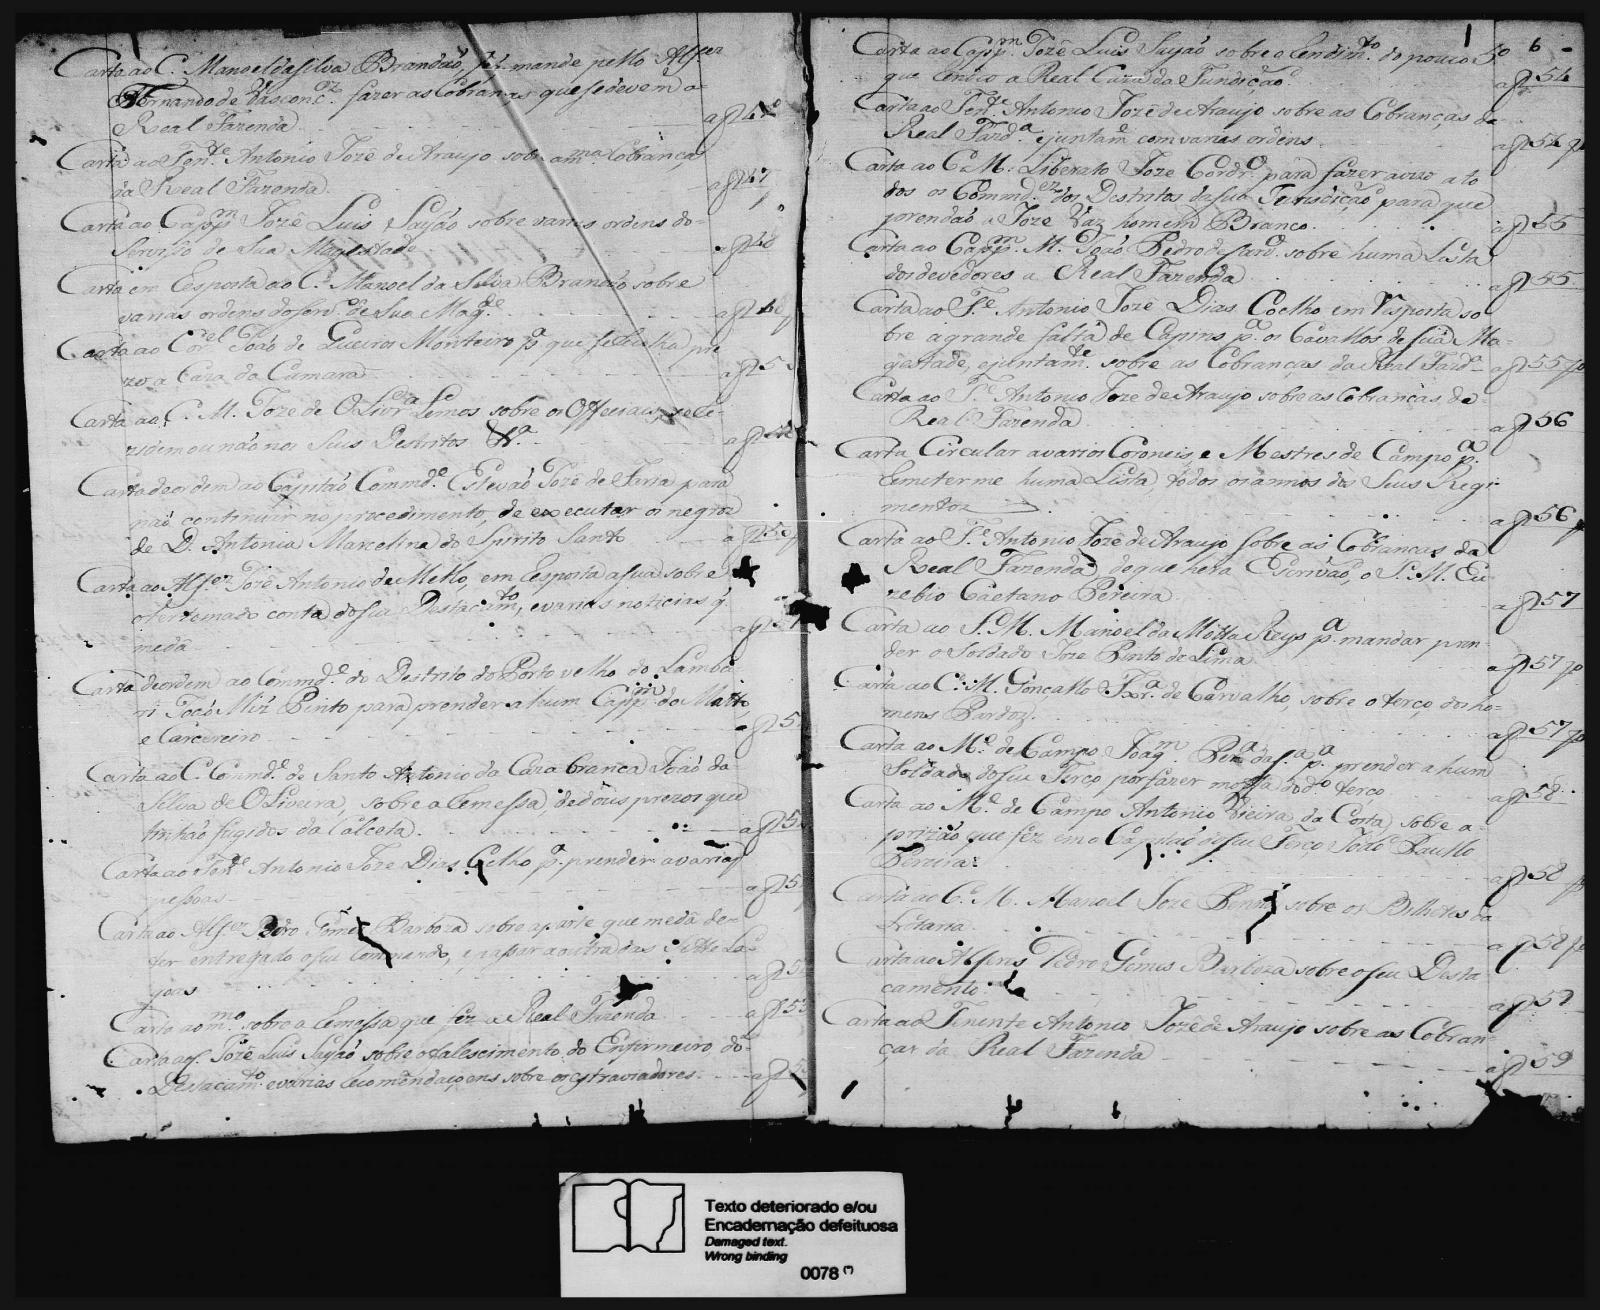 Carta ao C. Manoel da Silva Brandão mande pello Alf.er
Fernando de Vasconc.os fazer as Cobranças que se devem a
Real Fazenda
Carta ao Ten.te Antonio Jozê de Araujo sobre a m.ma Cobrança
da Real Fazenda a f 47
Carta ao Capp.m Jozê Luis Sayão sobre varias ordens do
Serviço de Sua Magestade a f 48
Carta em Resposta ao C. Manoel da Silva Brandão sobre
varias ordens do serv.o de Sua Mag.de
Carta ao Cor.el João de Queiros Monteiro p.a que se recolha pre
zo a Caza da Camara
Carta ao C. M. Joze de Olivr.a Lemos sobre os Officiaes, se re-
zidem ou não nos Seus Destritos &.a
Carta de ordem ao Capitão Commd.e Estevão Jozê de Faria para
não continuar no procedimento, de executar os negros
de D. Antonia Marcelina do Spirito Santo
Carta ao Alf.er Jozê Antonio de Mello, em Resposta a sua sobre
o ter tomado conta do seu Destacam.to, e varias noticias q.
me dá
Carta de ordem ao Commd.e do Destrito do Porto velho do Lamba
ri Joçe Miz Pinto para prender a hum Capp.m do Matto,
e Carcereiro
Carta ao C. Commd.e de Santo Antonio da Caza branca João da
Silva de Oliveira, sobre a Remessa, de dous prezos que
tinhão fugidos da Calceta.
Carta ao Ten.te Antonio Joze Dias Coelho p.a prender a varias
pessoas
Carta ao Alf.er Pedro Gomes Barboza sobre a parte que me dá de
ter entregado o seu Commando, e passar a outra das Sette La-
goas
Carta ao m.mo sobre a Remessa que fêz a Real Fazenda
Carta ao Jozê Luis Sayão sobre o falescimento do Enfirmeiro do
Destacam.to e varias Recomendaçoens sobre os extraviadores.
6
Carta ao Capp.m Jozê Luis Sayão sobre o Rendim.to do pouco
que Rendeo a Real Caza da Fundição a f 54
Carta ao Ten.te Antonio Jozê de Araujo sobre as Cobranças da
Real Fazd.a e juntam.e com varias ordens a f 54
Carta ao C. M. Liberato Joze Cordr.o para fazer avizo a to
dos os Commd.es dos Destritos da sua Jurisdição para que
prendão a Joze Vaz homem Branco. a f 55
Carta ao Capp.m M. João Pedro de sobre huma Lista
dos devedores a Real Fazenda a f 55
Carta ao T.e Antonio Jozê Dias Coelho em Resposta so
bre a grande falta de Capins p.a os Cavallos de Sua Ma-
gestade, e juntam.te sobre as Cobranças da Real Fazd.a a f 55
Carta ao T.e Antonio Joze de Araujo sobre as Cobranças da
Real Fazenda a f 56
Carta Circular a varios Coroneis, e Mestres de Campo p.a
Remeterme huma Lista, todos os annos dos Seus Regi-
mentos a f 56
Carta ao T.e Antonio Jozê de Araujo sobre as Cobrancas da
Real Fazenda, de que hera Escrivão, o S. M. Eu
zebio Caetano Pereira a f 57
Carta ao S. M. Manoel da Motta Reys p.a mandar pren-
der o Soldado Joze Pinto de Lima a f 57
Carta ao C. M. Goncallo de Carvalho, sobre o terço dos ho-
mens Pardos. a f 57
Carta ao M.e de Campo Joaq.m Per.a da S.a p.a prender a hum
Soldado do seu Terço, por fazer no d.o terço a f 58
Carta ao M.e de Campo Antonio Vieira da Costa, sobre a
prizão que fêz em o Capitão do seu Terço João Paullo
Pereira a f 58
Carta ao C. M. Manoel Joze sobre os Bilhetes da
Lotaria a f 58
Carta ao Alferes Pedro Gomes Barboza sobre o seu Desta
camento
Carta ao Tenente Antonio Jozê de Araujo sobre as Cobran-
ças da Real Fazenda a f 59
Texto deteriorado e/ou
Encadernação defeituosa
Damaged text.
Wrong binding
0078 (*)